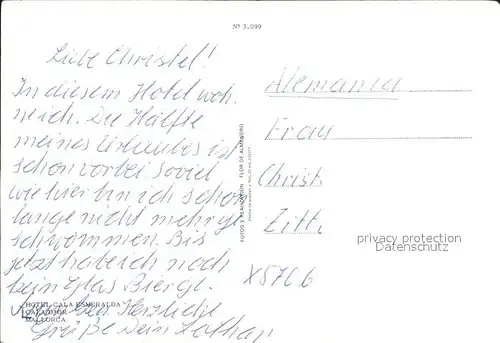 Nº 3.099
Liebe Christel!
In diesem Hotel woh
ne ich. Die Hälfte
meines Urlaubes ist
schon vorbei Soviel
wie hier bin ich schon
lange nicht mehr ge
schwommen. Bis
jetzt habe ich noch
kein Glas Bier ge
Herzliche
Grüße Dein Lothar
HOTEL CALA ESMERALDA
CALA D'OR
MALLORCA
FOTOS Y REALIZACION FLOR DE ALMENDRO
Alemania
Frau
Christ
Zitt
X5706
privacy protection
Datenschutz